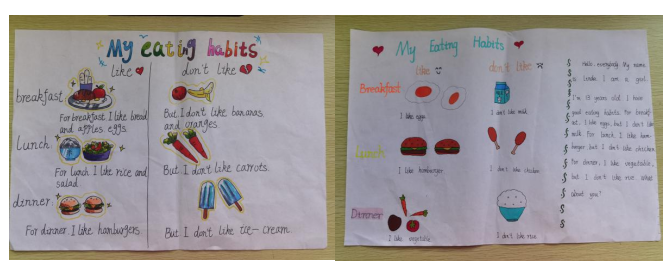 My eating habits
like don't like
breakfast
For breakfast I like bread
and apples. eggs.
But I don't like bananas
and oranges.
Lunch
For lunch I like rice and
salad.
But I don't like carrots.
dinner.
For dinner. I like hamburgers.
But I don't like ice-cream.
My Eating Habits
like don't like
Breakfast
I like eggs
I don't like milk.
Lunch
I like hamburger
I don't like chicken
Dinner
I like vegetable
I don't like rice
Hello, everybody. My name
is Linda. I am a girl.
I'm 13 years old. I have
good eating habits. For breakf-
ast. I like eggs, but I don't like
milk. For lunch, I like ham-
burger, but I don't like chicken.
For dinner, I like vegetable,
but I don't like rice. What
about you?